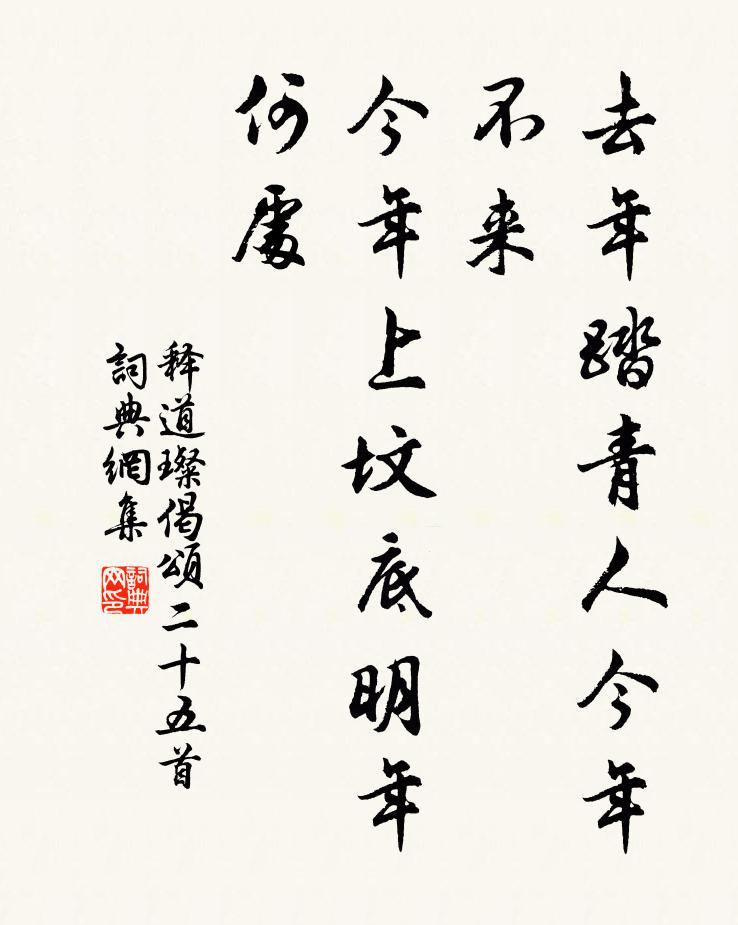 去年踏青人今年
不来
今年上坟底明年
何處
释道璨偈頌二十五首
詞典網集
詞典網印